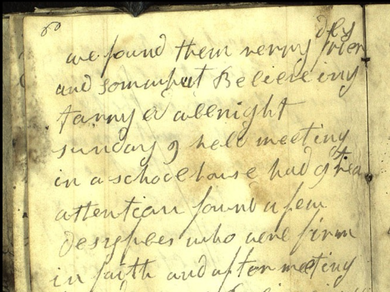 we found them verry
and somwhat Believeing
tarryed allnight
sunday 9 held meeting
in a schoolhouse had grea
attention found a few
desiples who were firm
in faith and after meeting